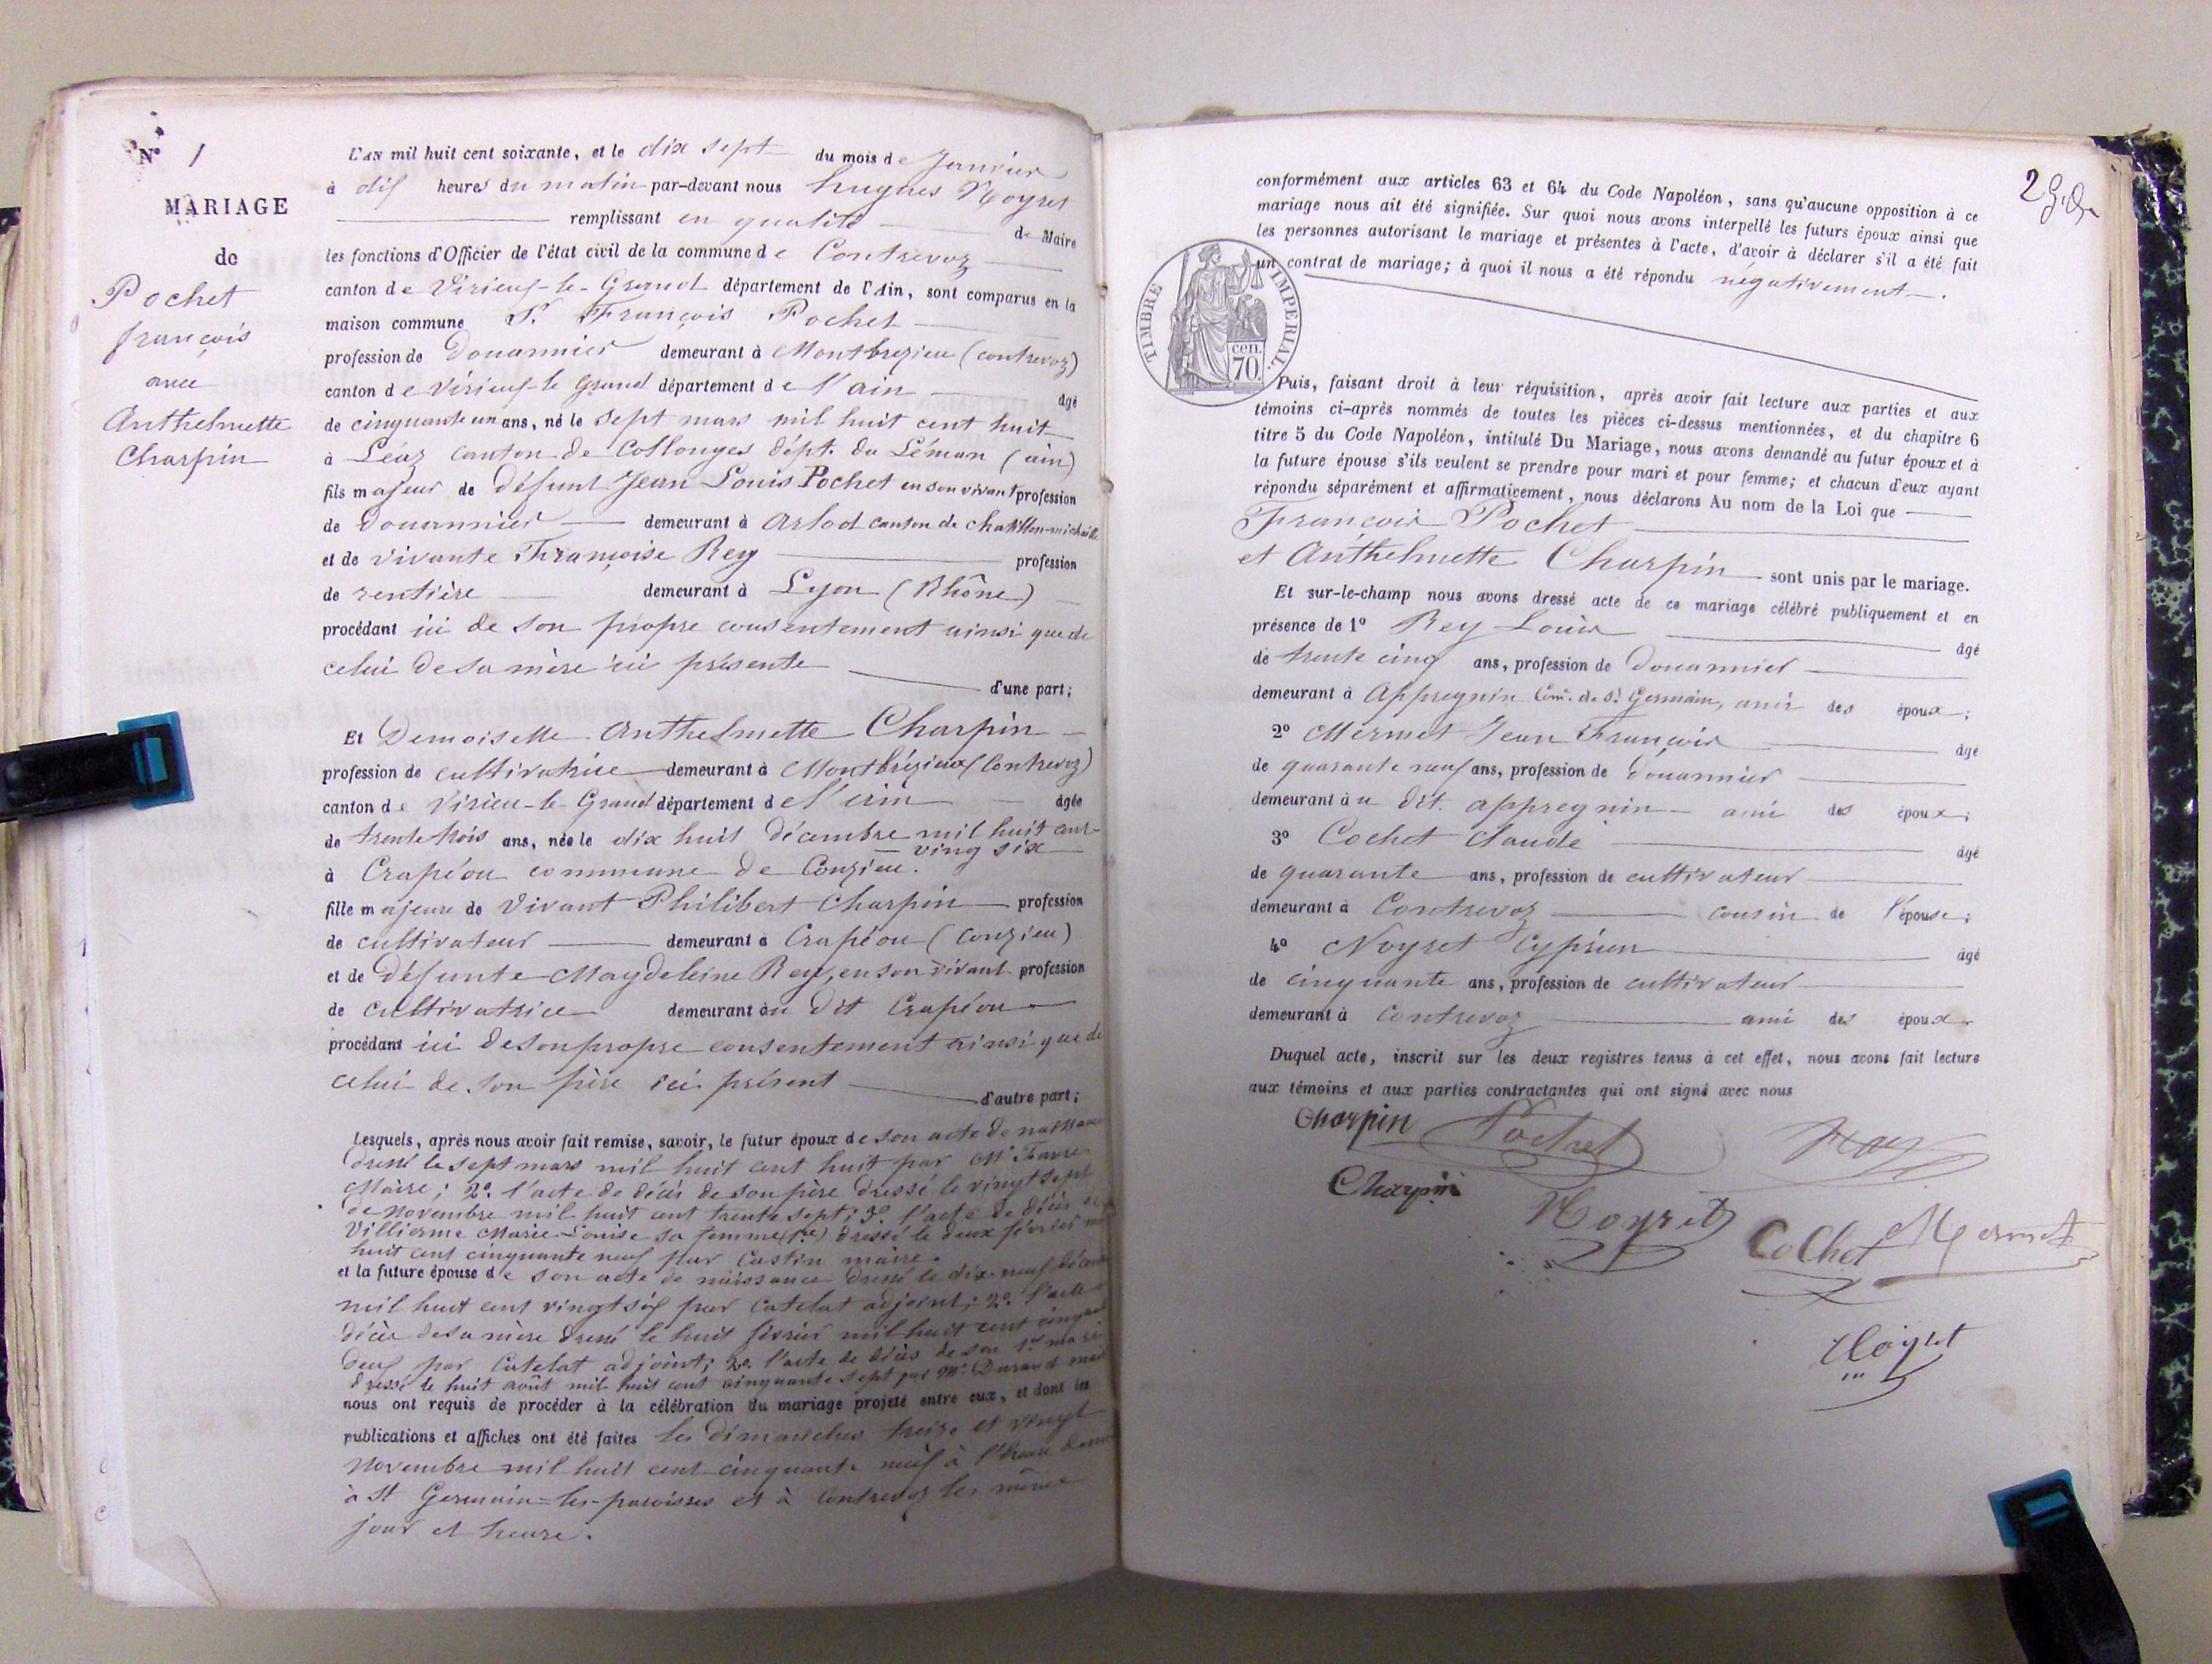 N° 1
MARIAGE
de
Pochet
françois
avec
Anthelmette
Charpin
L'AN mil huit cent soixante, et le dix sept du mois de Janvier
à dix heures du matin par-devant nous hugues Noyret
remplissant en qualité de Maire
les fonctions d'Officier de l'état civil de la commune de Contrevoz
canton de Virieux-le-Grand département de l'Ain, sont comparus en la
maison commune Sr. François Pochet
profession de Douannier demeurant à Montbrezieu (contrevoz)
canton de Virieux-le Grand département de l'ain âgé
de cinquante un ans, né le sept mars mil huit cent huit
à Léaz canton de Collonges dépt. du Léman (ain)
fils majeur de défunt Jean Louis Pochet en son vivant profession
de Douannier demeurant à Arlod canton de chatillon-michaille
et de vivante Françoise Rey profession
de rentière demeurant à Lyon (Rhône)
procédant ici de son propre consentement ainsi que de
celui de sa mère ici présente
d'une part;
Et Demoiselle Anthelmette Charpin
profession de cultivatrice demeurant à Montbrézieux (Contrevoz)
canton de Virieu-le-Grand département de l'ain âgée
de trente trois ans, née le dix huit décembre mil huit cent
ving six
à Crapéou commune de Conzieu.
fille majeure de Vivant Philibert Charpin profession
de cultivateur demeurant à Crapéou (Conzieu)
et de Défunte Magdeleine Rey, en son vivant profession
de cultivatrice demeurant au dit Crapéou
procédant ici de son propre consentement ainsi que de
celui de son père ici présent
d'autre part;
Lesquels, après nous avoir fait remise, savoir, le futur époux de son acte de naissance
dressé le sept mars mil huit cent huit par Mr Favre
Maire; 2°. l'acte de décès de son père dressé le vingt sept
de novembre mil huit cent trente sept; 3°. l'acte de décès de
Villerme Marie Louise sa femme (1re) dressé le deux février mil
huit cent cinquante neuf par Castin maire.
et la future épouse de son acte de naissance dressé le dix-neuf décembre
mil huit cent vingt six par Catelat adjoint; 2°. l'acte
décès de sa mère dressé le huit février mil huit cent cinquante
deux par Catelat adjoint; 2°. l'acte de décès de son 1er mari
dressé le huit août mil huit cent cinquante sept par Mr. Durand maire
nous ont requis de procéder à la célébration du mariage projeté entre eux, et dont les
publications et affiches ont été faites les dimanches treize et vingt
novembre mil huit cent cinquante neuf à l'heure
à St Germain-les-paroisses et à Contrevoz les même
jour et heure.
2
conformément aux articles 63 et 64 du Code Napoléon, sans qu'aucune opposition à ce
mariage nous ait été signifiée. Sur quoi nous avons interpellé les futurs époux ainsi que
les personnes autorisant le mariage et présentes à l'acte, d'avoir à déclarer s'il a été fait
un contrat de mariage; à quoi il nous a été répondu négativement.
TIMBRE IMPERIAL.
cen.
70.
Puis, faisant droit à leur réquisition, après avoir fait lecture aux parties et aux
témoins ci-après nommés de toutes les pièces ci-dessus mentionnées, et du chapitre 6
titre 5 du Code Napoléon, intitulé Du Mariage, nous avons demandé au futur époux et à
la future épouse s'ils veulent se prendre pour mari et pour femme; et chacun d'eux ayant
répondu séparément et affirmativement, nous déclarons Au nom de la Loi que
François Pochet
et Anthelmette Charpin sont unis par le mariage.
Et sur-le-champ nous avons dressé acte de ce mariage célébré publiquement et en
présence de 1° Rey Louis âgé
de trente cinq ans, profession de Douannier
demeurant à Appregnin Com. de St. Germain, ami des époux;
2° Mermet Jean François âgé
de quarante neuf ans, profession de Douannier
demeurant à u dit. appregnin ami des époux;
3° Cochet Claude âgé
de quarante ans, profession de cultivateur
demeurant à Contrevoz cousin de l'épouse;
4° Noyret Cyprien âgé
de cinquante ans, profession de cultivateur
demeurant à Contrevoz ami des époux.
Duquel acte, inscrit sur les deux registres tenus à cet effet, nous avons fait lecture
aux témoins et aux parties contractantes qui ont signé avec nous
Charpin Pochet Rey
Charpin
Noyret CoChet Mermet
Noyret